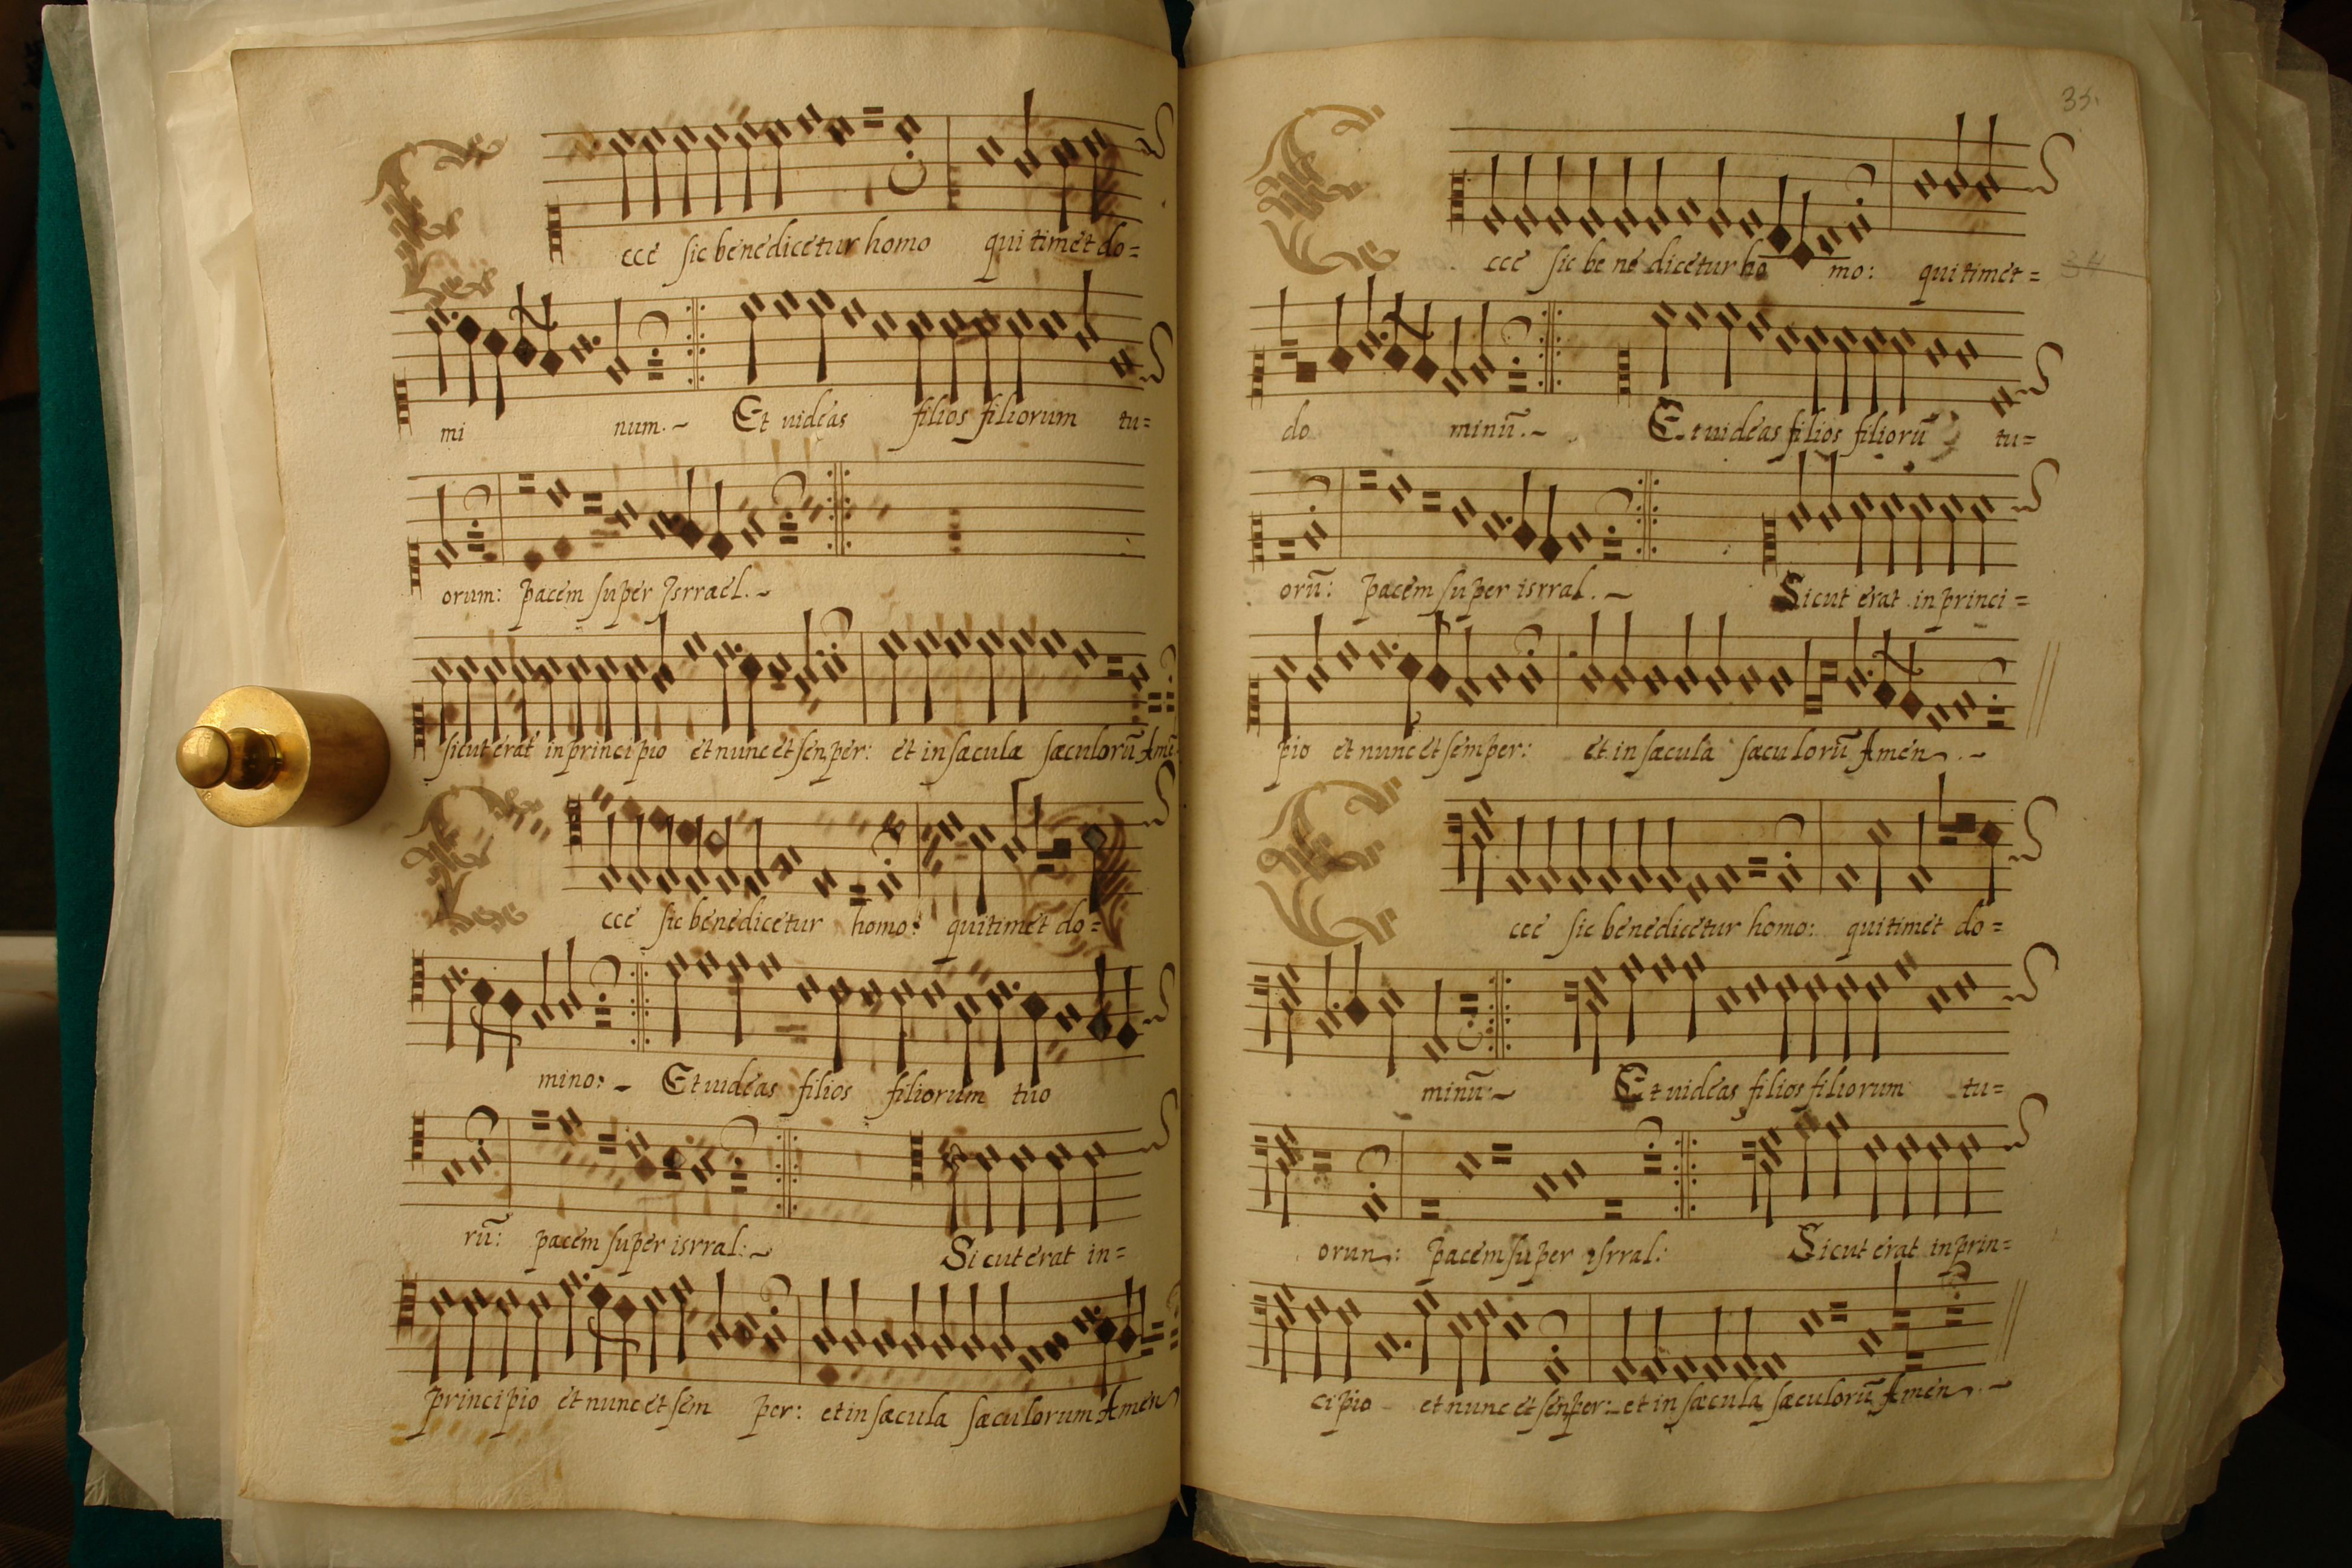 Ecce sic benedicetur homo qui timet do=
mi num.~ Et uideas filios filiorum tu=
orum: pacem super Isrrael.~
sicut erat in principio et nunc et senper: et in sæcula sæculorũ Amẽ
Ecce sic benedicetur homo: qui timet do=
mino:~ Et uideas filios filiorum tuo
rũ: pacem super isrral:~ Sicut erat in=
principio et nunc et sem per: et in sæcula sæculorum Amen
35.
Ecce sic be ne dicetur ho mo: qui timet=
34
do minũ.~ Et uideas filios filiorũ tu=
orũ: pacem super isrral.~ Sicut erat in princi=
pio et nunc et semper: et in sæcula sæculorũ Amen.~
Ecce sic benedicetur homo: qui timet do=
minũ:~ Et uideas filios filiorum tu=
orun: pacem super isrral: Sicut erat in prin=
cipio et nunc et senper: et in sæcula sæculorũ Amen.~